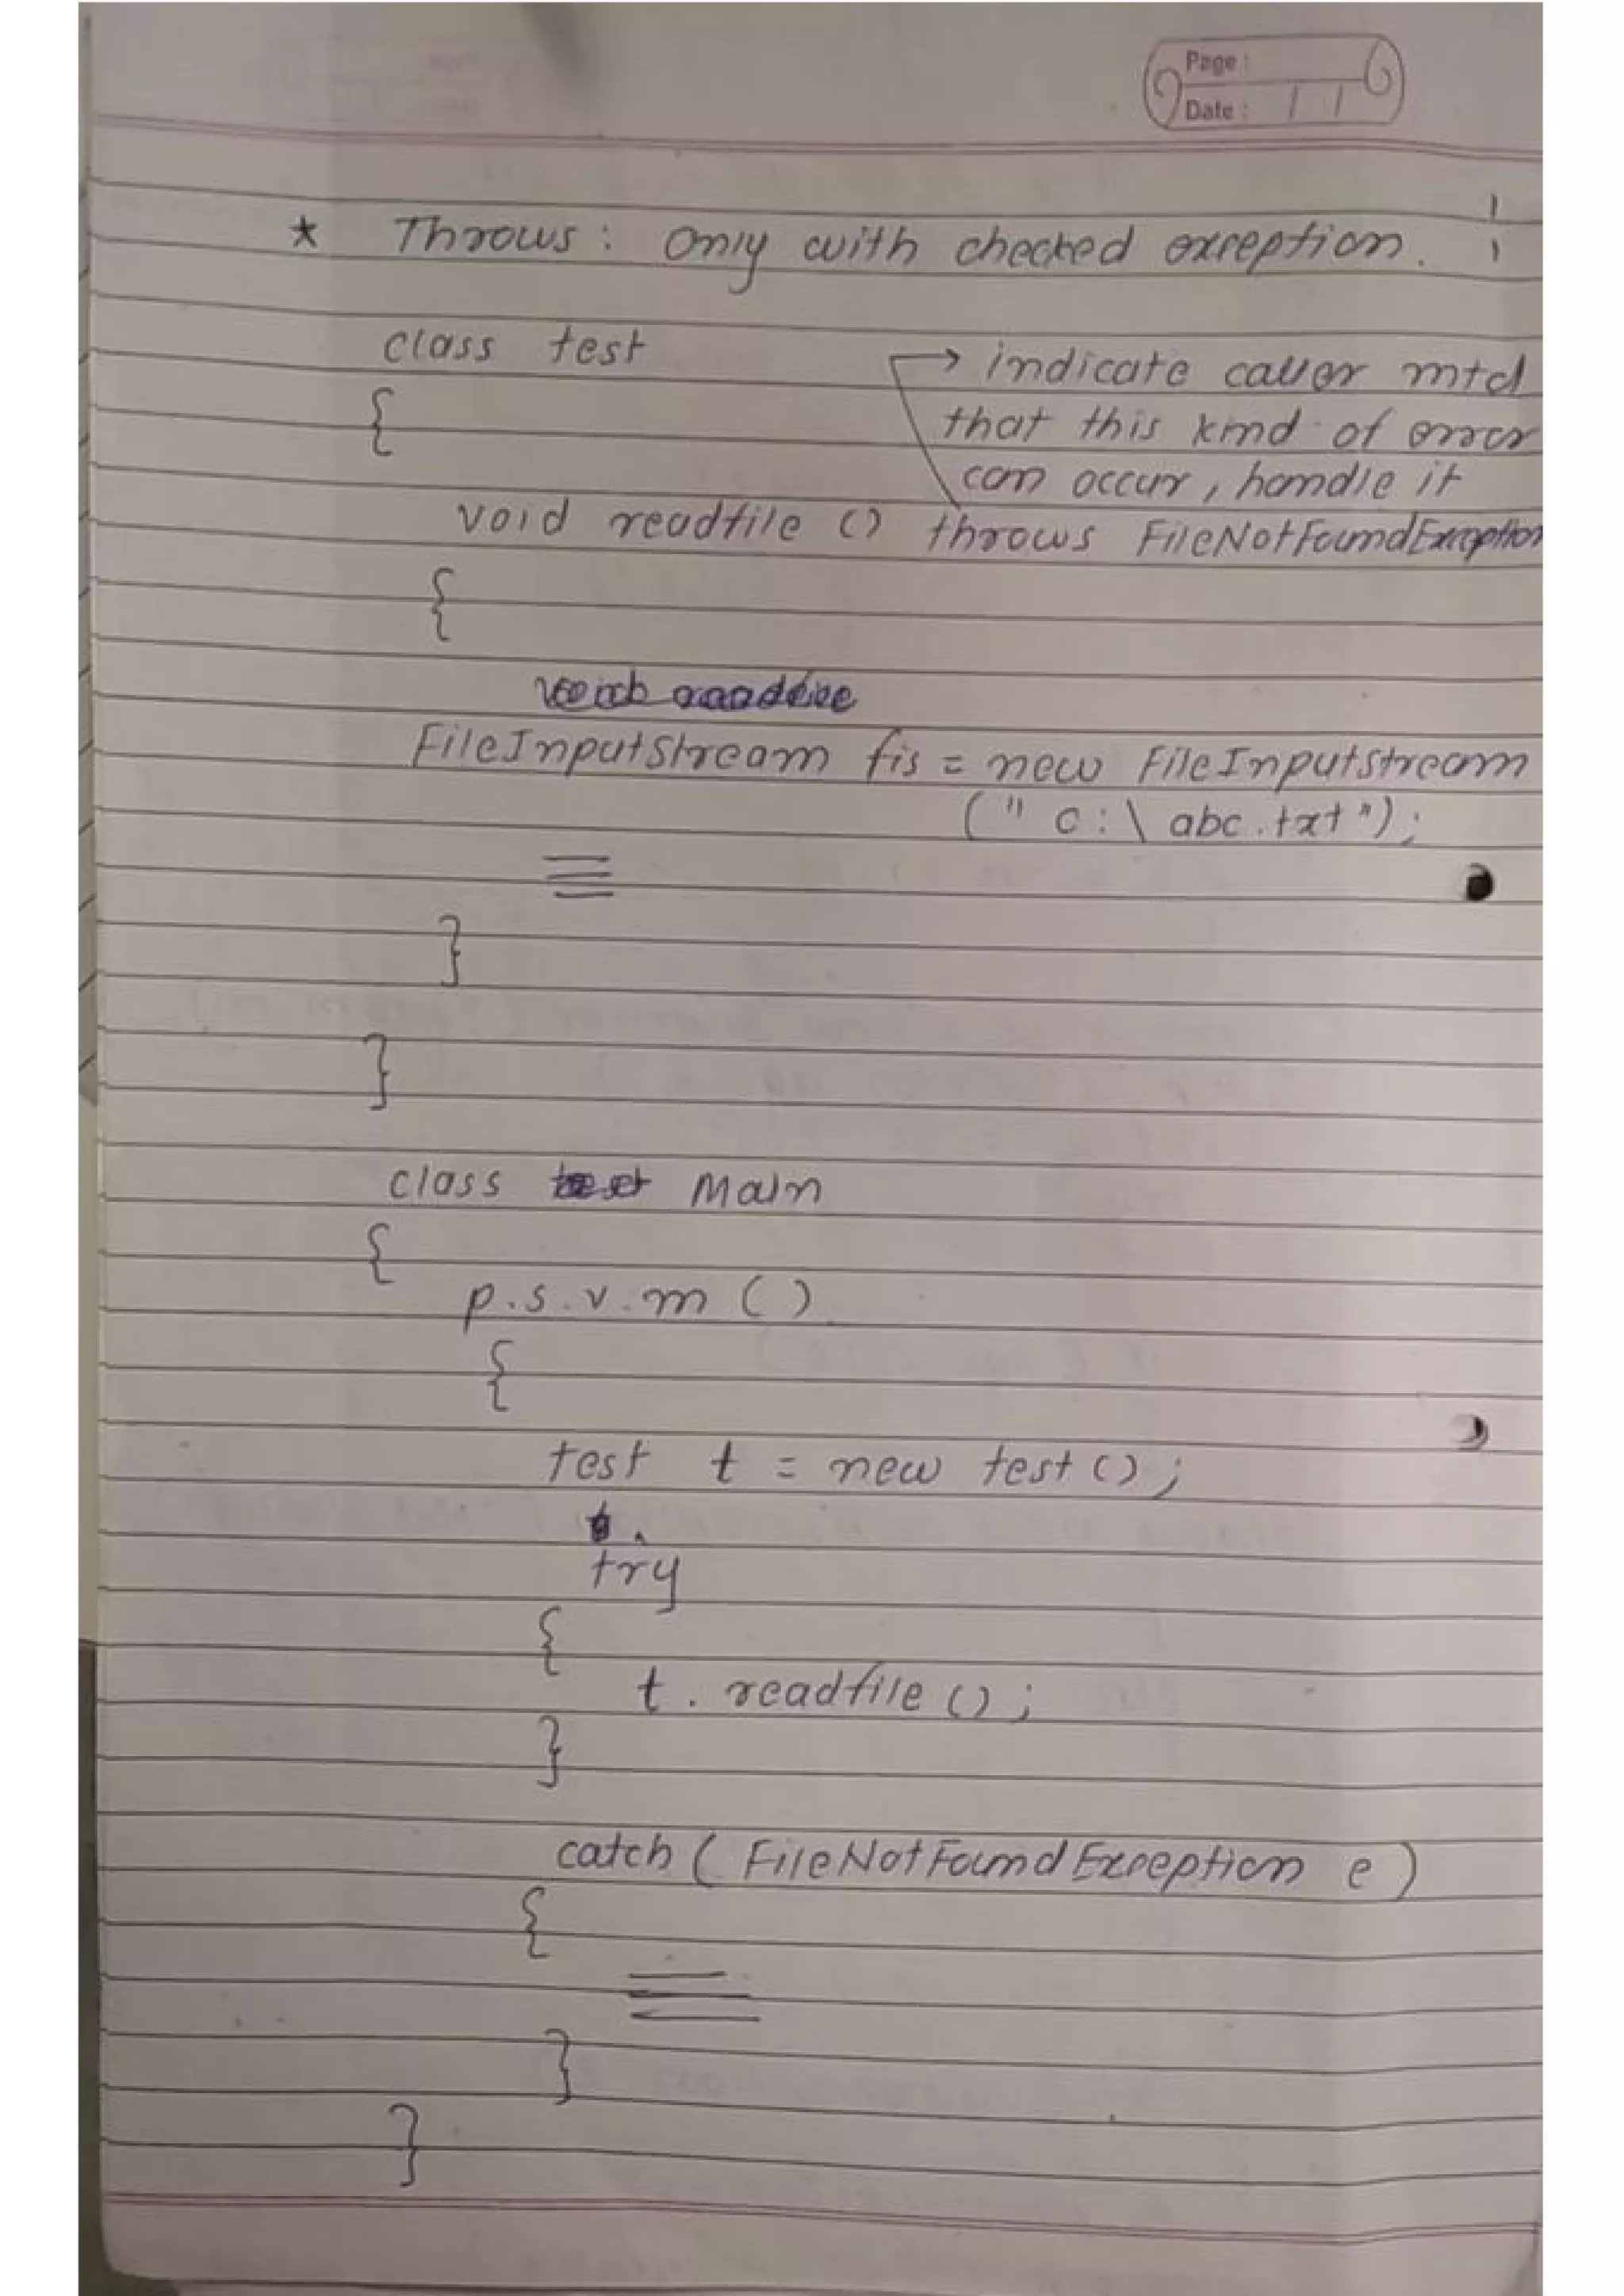 Page:
Date: / /
* Throws: Only with checked exception.
class test
→ indicate caller mtd
{
that this kind of error
can occur, handle it
void readfile () throws FileNotFoundException
{
FileInputStream fis = new FileInputStream
(" C:\ abc.txt");
}
}
class Main
{
p.s.v.m ()
{
test t = new test();
try
{
t. readfile ();
}
catch ( FileNotFoundException e )
{
}
}